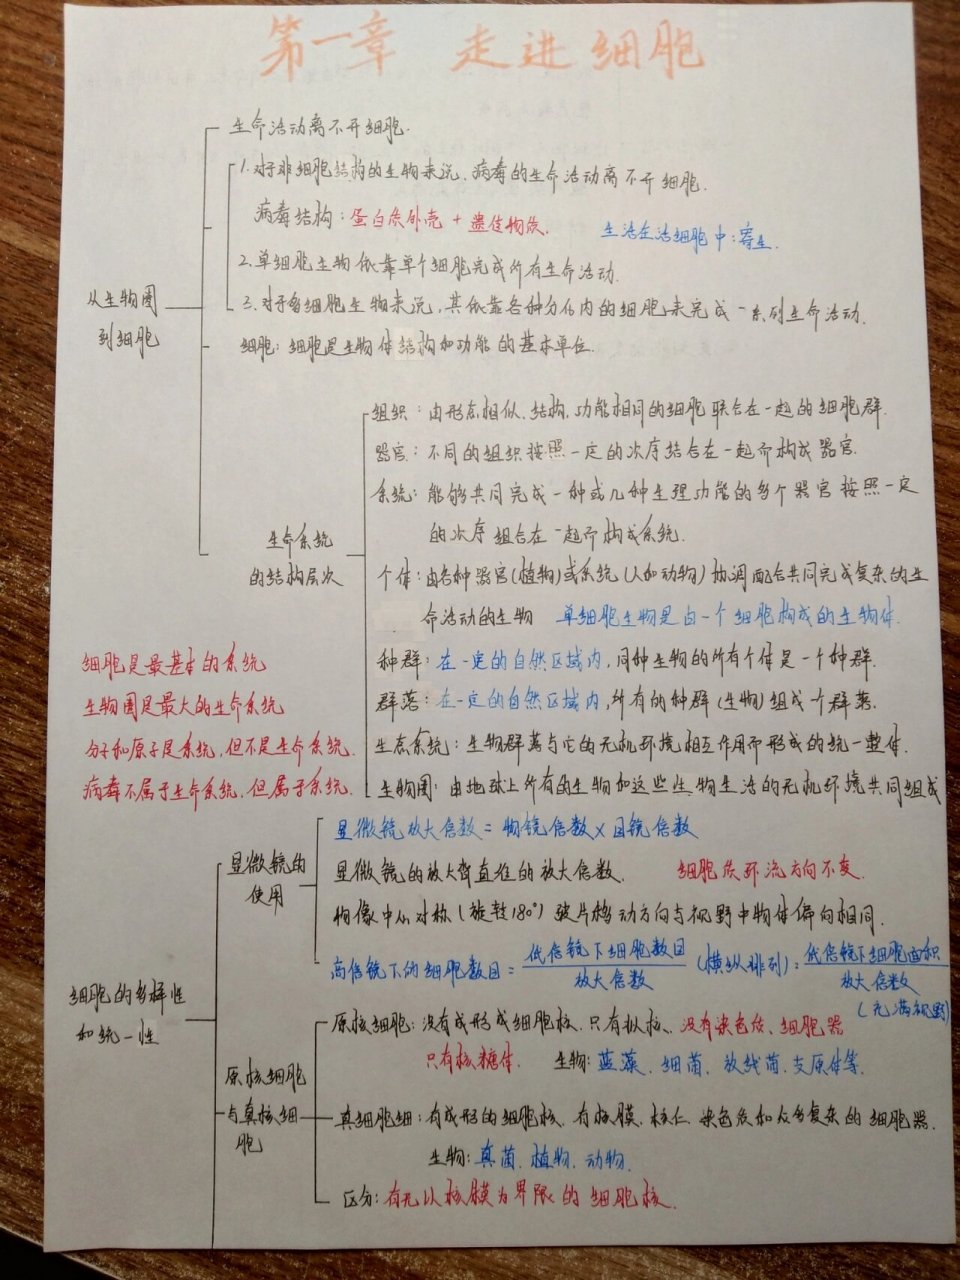 第一章 走进细胞
生命活动离不开细胞.
1.对于非细胞结构的生物来说,病毒的生命活动离不开细胞.
病毒结构:蛋白质外壳 + 遗传物质. 生活在活细胞中:寄生.
2.单细胞生物依靠单个细胞完成所有生命活动.
从生物圈
到细胞
3.对于多细胞生物来说,其依靠各种分化内的细胞来完成一系列生命活动.
细胞:细胞是生物体结构和功能的基本单位.
组织:由形态相似、结构、功能相同的细胞联合在一起的细胞群.
器官:不同的组织按照一定的次序结合在一起而构成器官.
系统:能够共同完成一种或几种生理功能的多个器官按照一定
的次序组合在一起而构成系统.
生命系统
的结构层次
个体:由各种器官(植物)或系统(人和动物)协调配合共同完成复杂的生
命活动的生物 单细胞生物是由一个细胞构成的生物体.
种群:在一定的自然区域内,同种生物的所有个体是一个种群.
群落:在一定的自然区域内,所有的种群(生物)组成一个群落.
生态系统:生物群落与它的无机环境相互作用而形成的统一整体.
生物圈:由地球上所有的生物和这些生物生活的无机环境共同组成
细胞是最基本的系统
生物圈是最大的生命系统
分子和原子是系统,但不是生命系统.
病毒不属于生命系统,但属于系统.
显微镜的
使用
显微镜放大倍数=物镜倍数×目镜倍数
显微镜的放大指直径的放大倍数. 细胞质环流方向不变.
物像中心对称(旋转180°)玻片移动方向与视野中物体偏向相同.
高倍镜下的细胞数目=低倍镜下细胞数目/放大倍数(横纵排列)=低倍镜下细胞面积/放大倍数
(充满视野)
细胞的多样性
和统一性
原核细胞
与真核细
胞
原核细胞:没有成形成细胞核,只有拟核、没有染色体、细胞器
只有核糖体. 生物:蓝藻、细菌、放线菌、支原体等.
真细胞细:有成形的细胞核、有核膜、核仁、染色质和众多复杂的细胞器.
生物:真菌、植物、动物.
区分:有无以核膜为界限的细胞核.